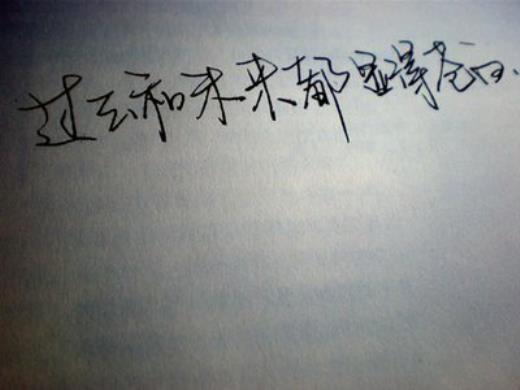 过去和未来都显得苍白.